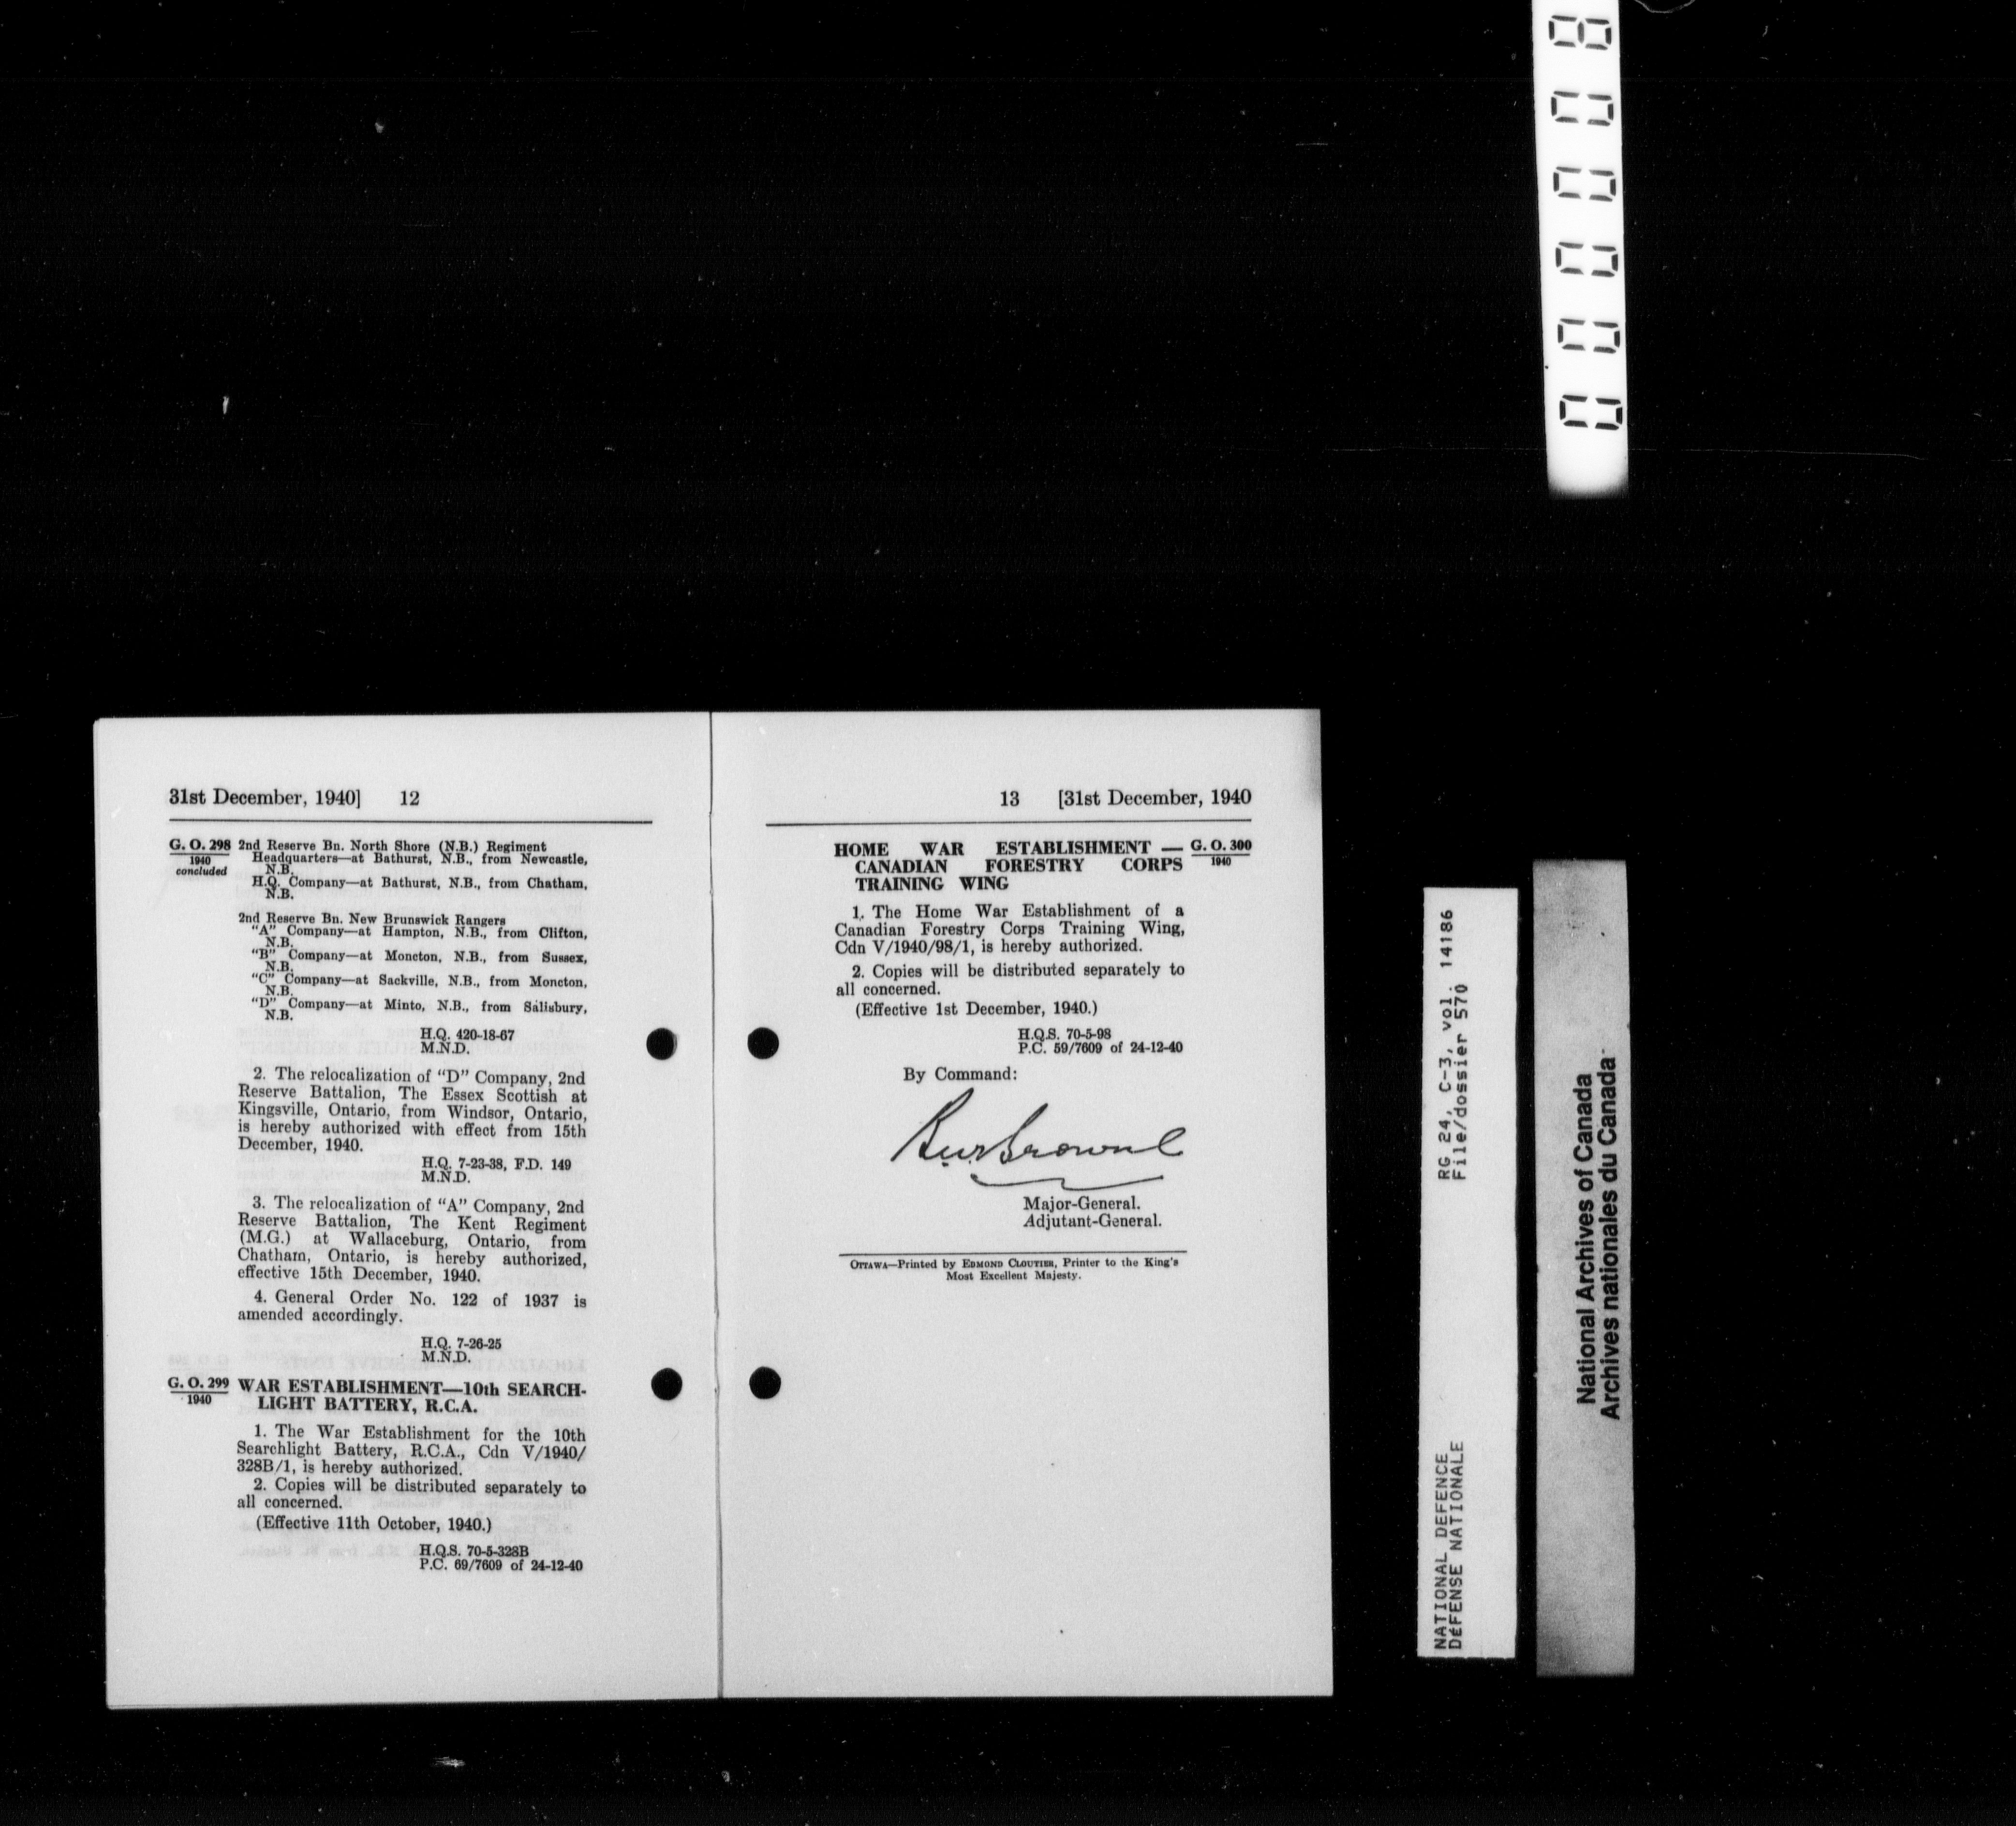 31st December, 1940] 12
G. O. 298
1940
concluded
2nd Reserve Bn. North Shore (N.B.) Regiment
Headquarters—at Bathurst, N.B., from Newcastle,
N.B.
H.Q. Company—at Bathurst, N.B., from Chatham,
N.B.
2nd Reserve Bn. New Brunswick Rangers
"A" Company—at Hampton, N.B., from Clifton,
N.B.
"B" Company—at Moncton, N.B., from Sussex,
N.B.
"C" Company—at Sackville, N.B., from Moncton,
N.B.
"D" Company—at Minto, N.B., from Salisbury,
N.B.
H.Q. 420-18-67
M.N.D.
2. The relocalization of "D" Company, 2nd
Reserve Battalion, The Essex Scottish at
Kingsville, Ontario, from Windsor, Ontario,
is hereby authorized with effect from 15th
December, 1940.
H.Q. 7-23-38, F.D. 149
M.N.D.
3. The relocalization of "A" Company, 2nd
Reserve Battalion, The Kent Regiment
(M.G.) at Wallaceburg, Ontario, from
Chatham, Ontario, is hereby authorized,
effective 15th December, 1940.
4. General Order No. 122 of 1937 is
amended accordingly.
H.Q. 7-26-25
M.N.D.
G. O. 299
1940
WAR ESTABLISHMENT—10th SEARCH-
LIGHT BATTERY, R.C.A.
1. The War Establishment for the 10th
Searchlight Battery, R.C.A., Cdn V/1940/
328B/1, is hereby authorized.
2. Copies will be distributed separately to
all concerned.
(Effective 11th October, 1940.)
H.Q.S. 70-5-328B
P.C. 69/7609 of 24-12-40
13 [31st December, 1940
HOME WAR ESTABLISHMENT —
CANADIAN FORESTRY CORPS
TRAINING WING
G. O. 300
1940
1. The Home War Establishment of a
Canadian Forestry Corps Training Wing,
Cdn V/1940/98/1, is hereby authorized.
2. Copies will be distributed separately to
all concerned.
(Effective 1st December, 1940.)
H.Q.S. 70-5-98
P.C. 59/7609 of 24-12-40
By Command:
Major-General.
Adjutant-General.
OTTAWA—Printed by EDMOND CLOUTIER, Printer to the King's
Most Excellent Majesty.
000008
NATIONAL DEFENCE RG 24, C-3, vol. 14186
DÉFENSE NATIONALE File/dossier 570
National Archives of Canada
Archives nationales du Canada